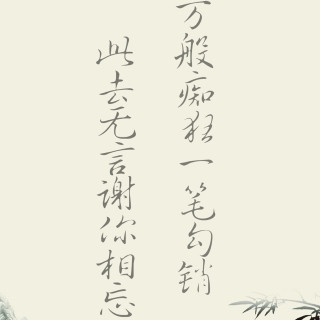 万般痴狂一笔勾销
此去无言谢你相忘